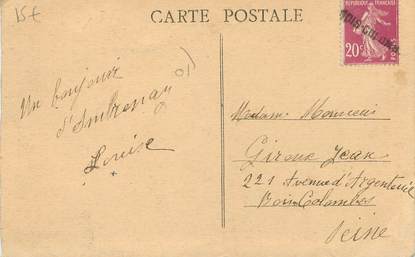 15€
CARTE POSTALE
REPUBLIQUE FRANÇAISE
20c
POSTES
BOIS-COLOMBES
Un bonjour
d'Ambronay
01
Louise
Madame Monsieur
Giroux Jean
221 Avenue d'Argenteuil
Bois Colombes
Seine